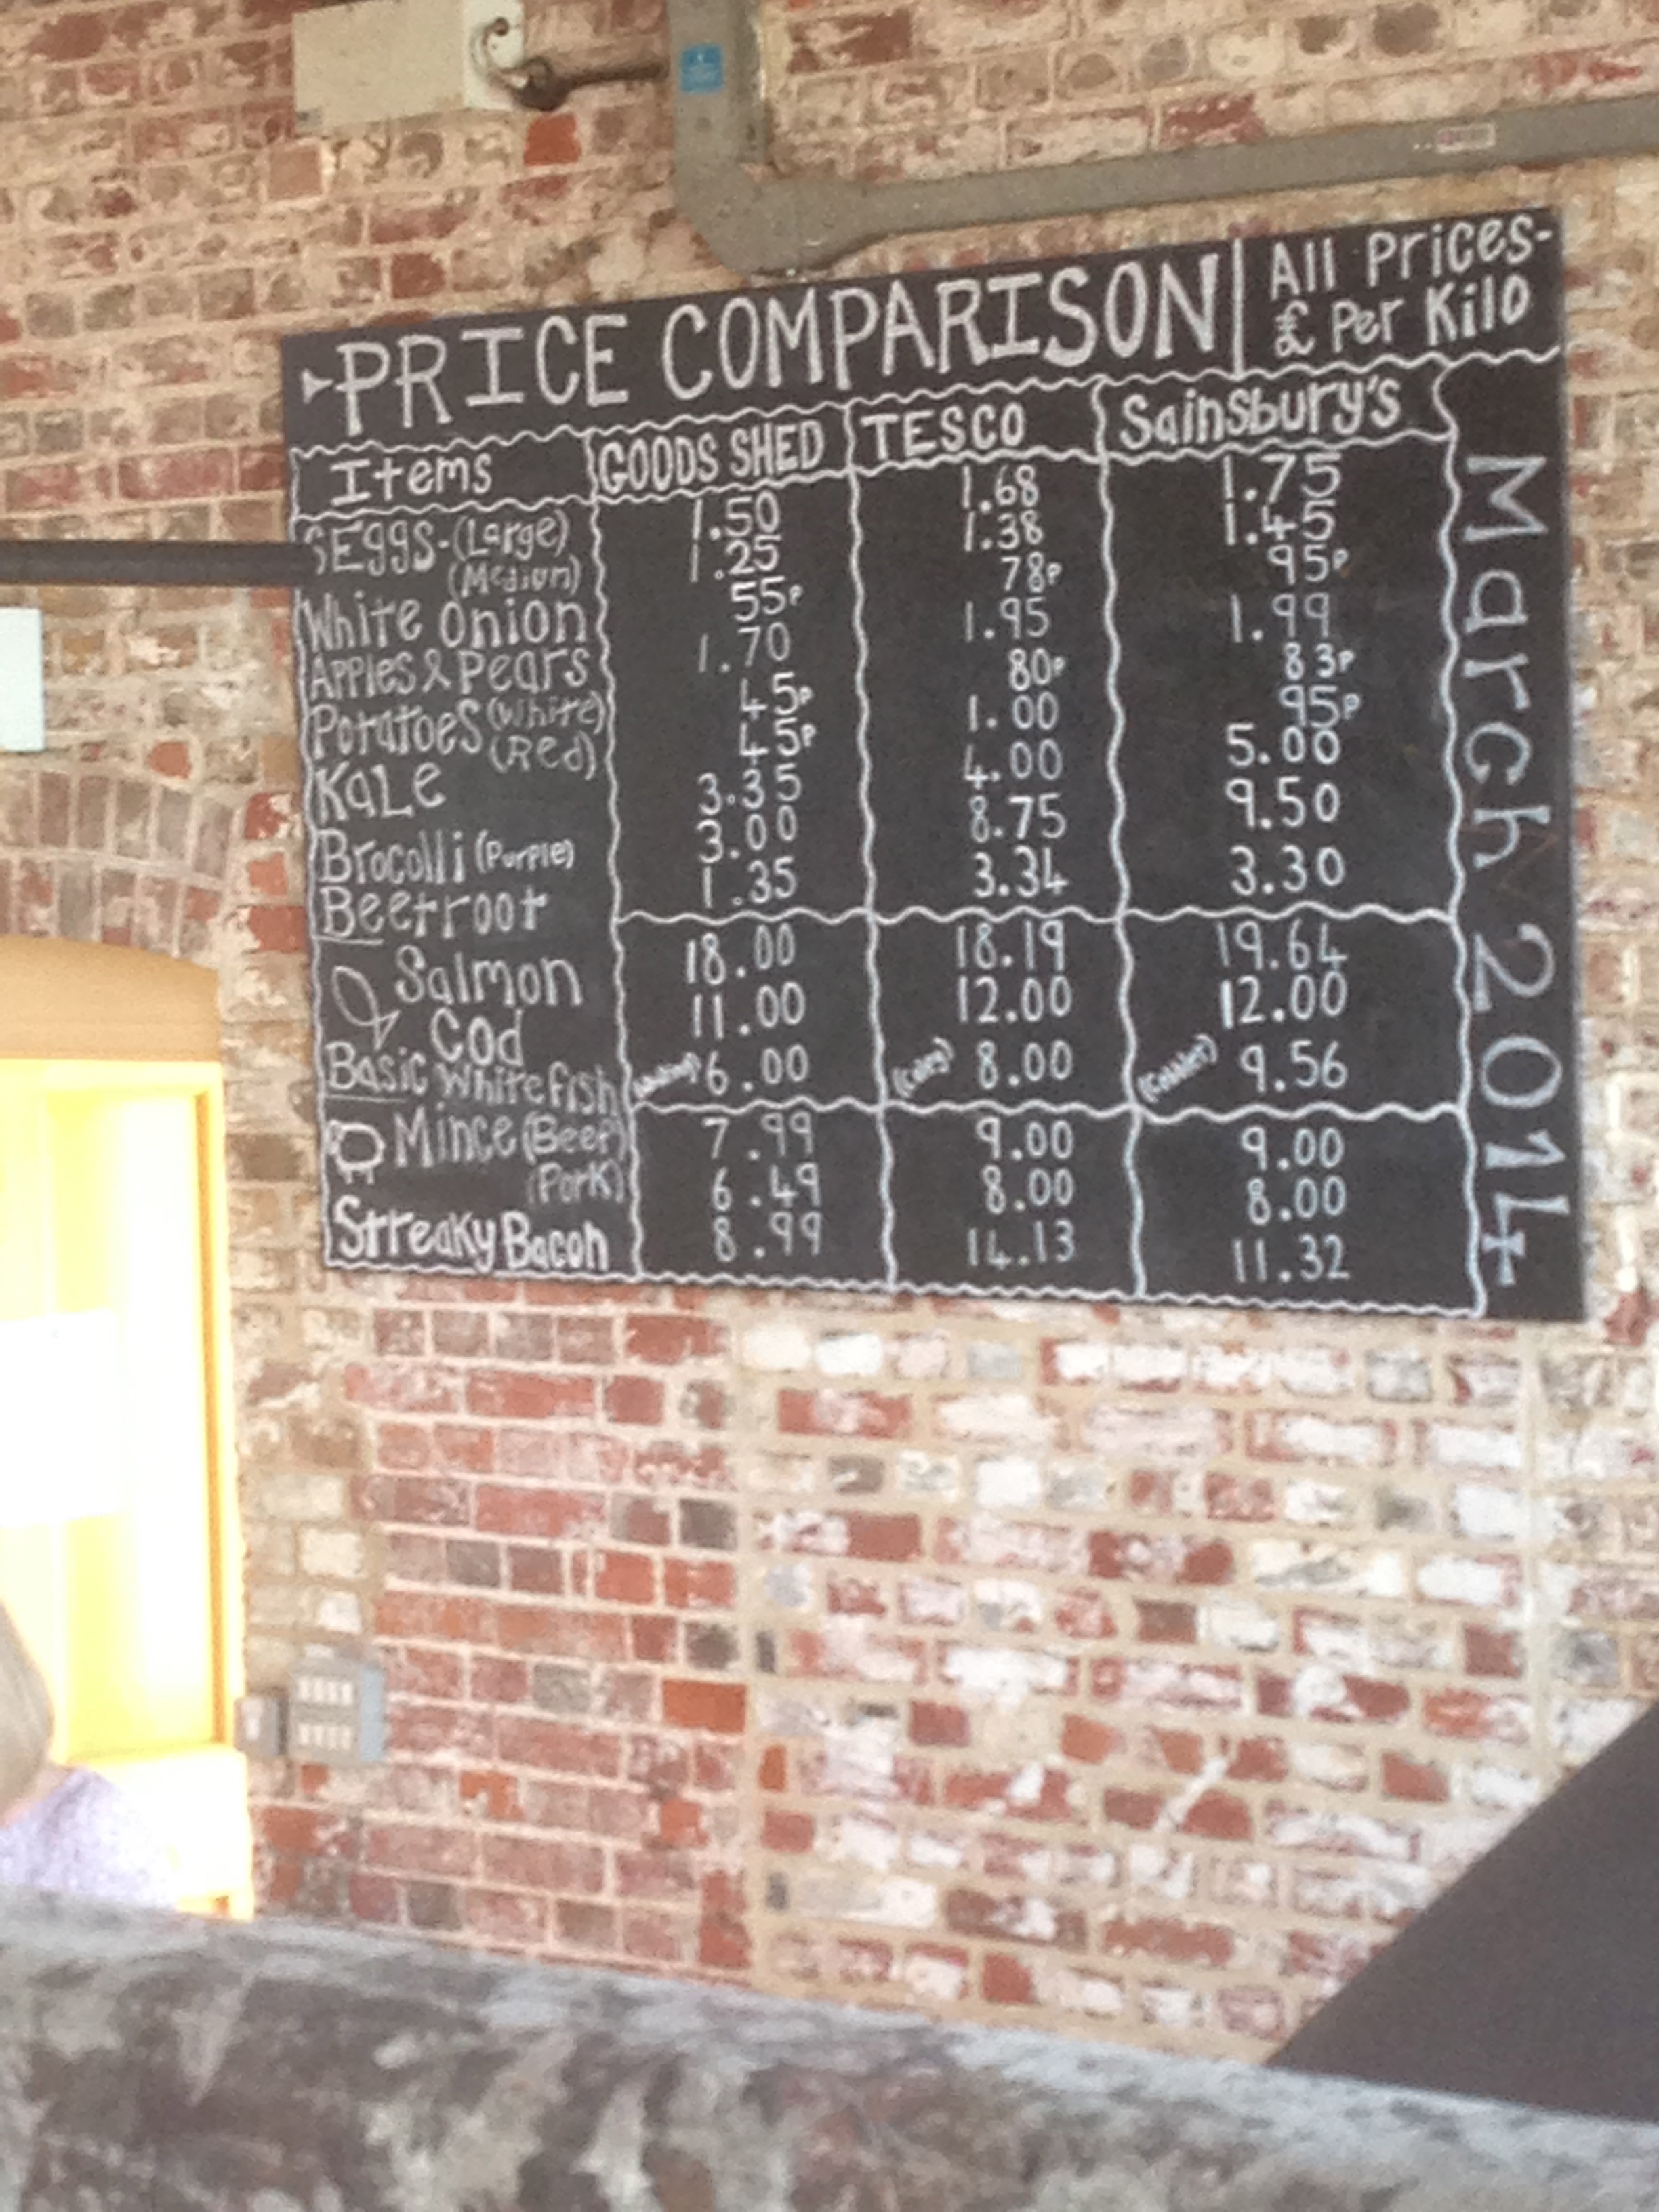 PRICE COMPARISON
All Prices-
£ Per Kilo
Items GOODS SHED TESCO Sainsbury's
6 Eggs-(Large) 1.50 1.68 1.75
(Medium) 1.25 1.38 1.45
White Onion 55p 78p 95p
Apples & Pears 1.70 1.95 1.99
Potatoes (White) 45p 80p 83p
(Red) 45p 1.00 95p
Kale 3.35 4.00 5.00
Brocolli (Purple) 3.00 8.75 9.50
Beetroot 1.35 3.34 3.30
Salmon 18.00 18.19 19.64
Cod 11.00 12.00 12.00
Basic White fish 6.00 (Coley) 8.00 9.56
Mince (Beef) 7.99 9.00 9.00
(Pork) 6.49 8.00 8.00
Streaky Bacon 8.99 14.13 11.32
March 2014